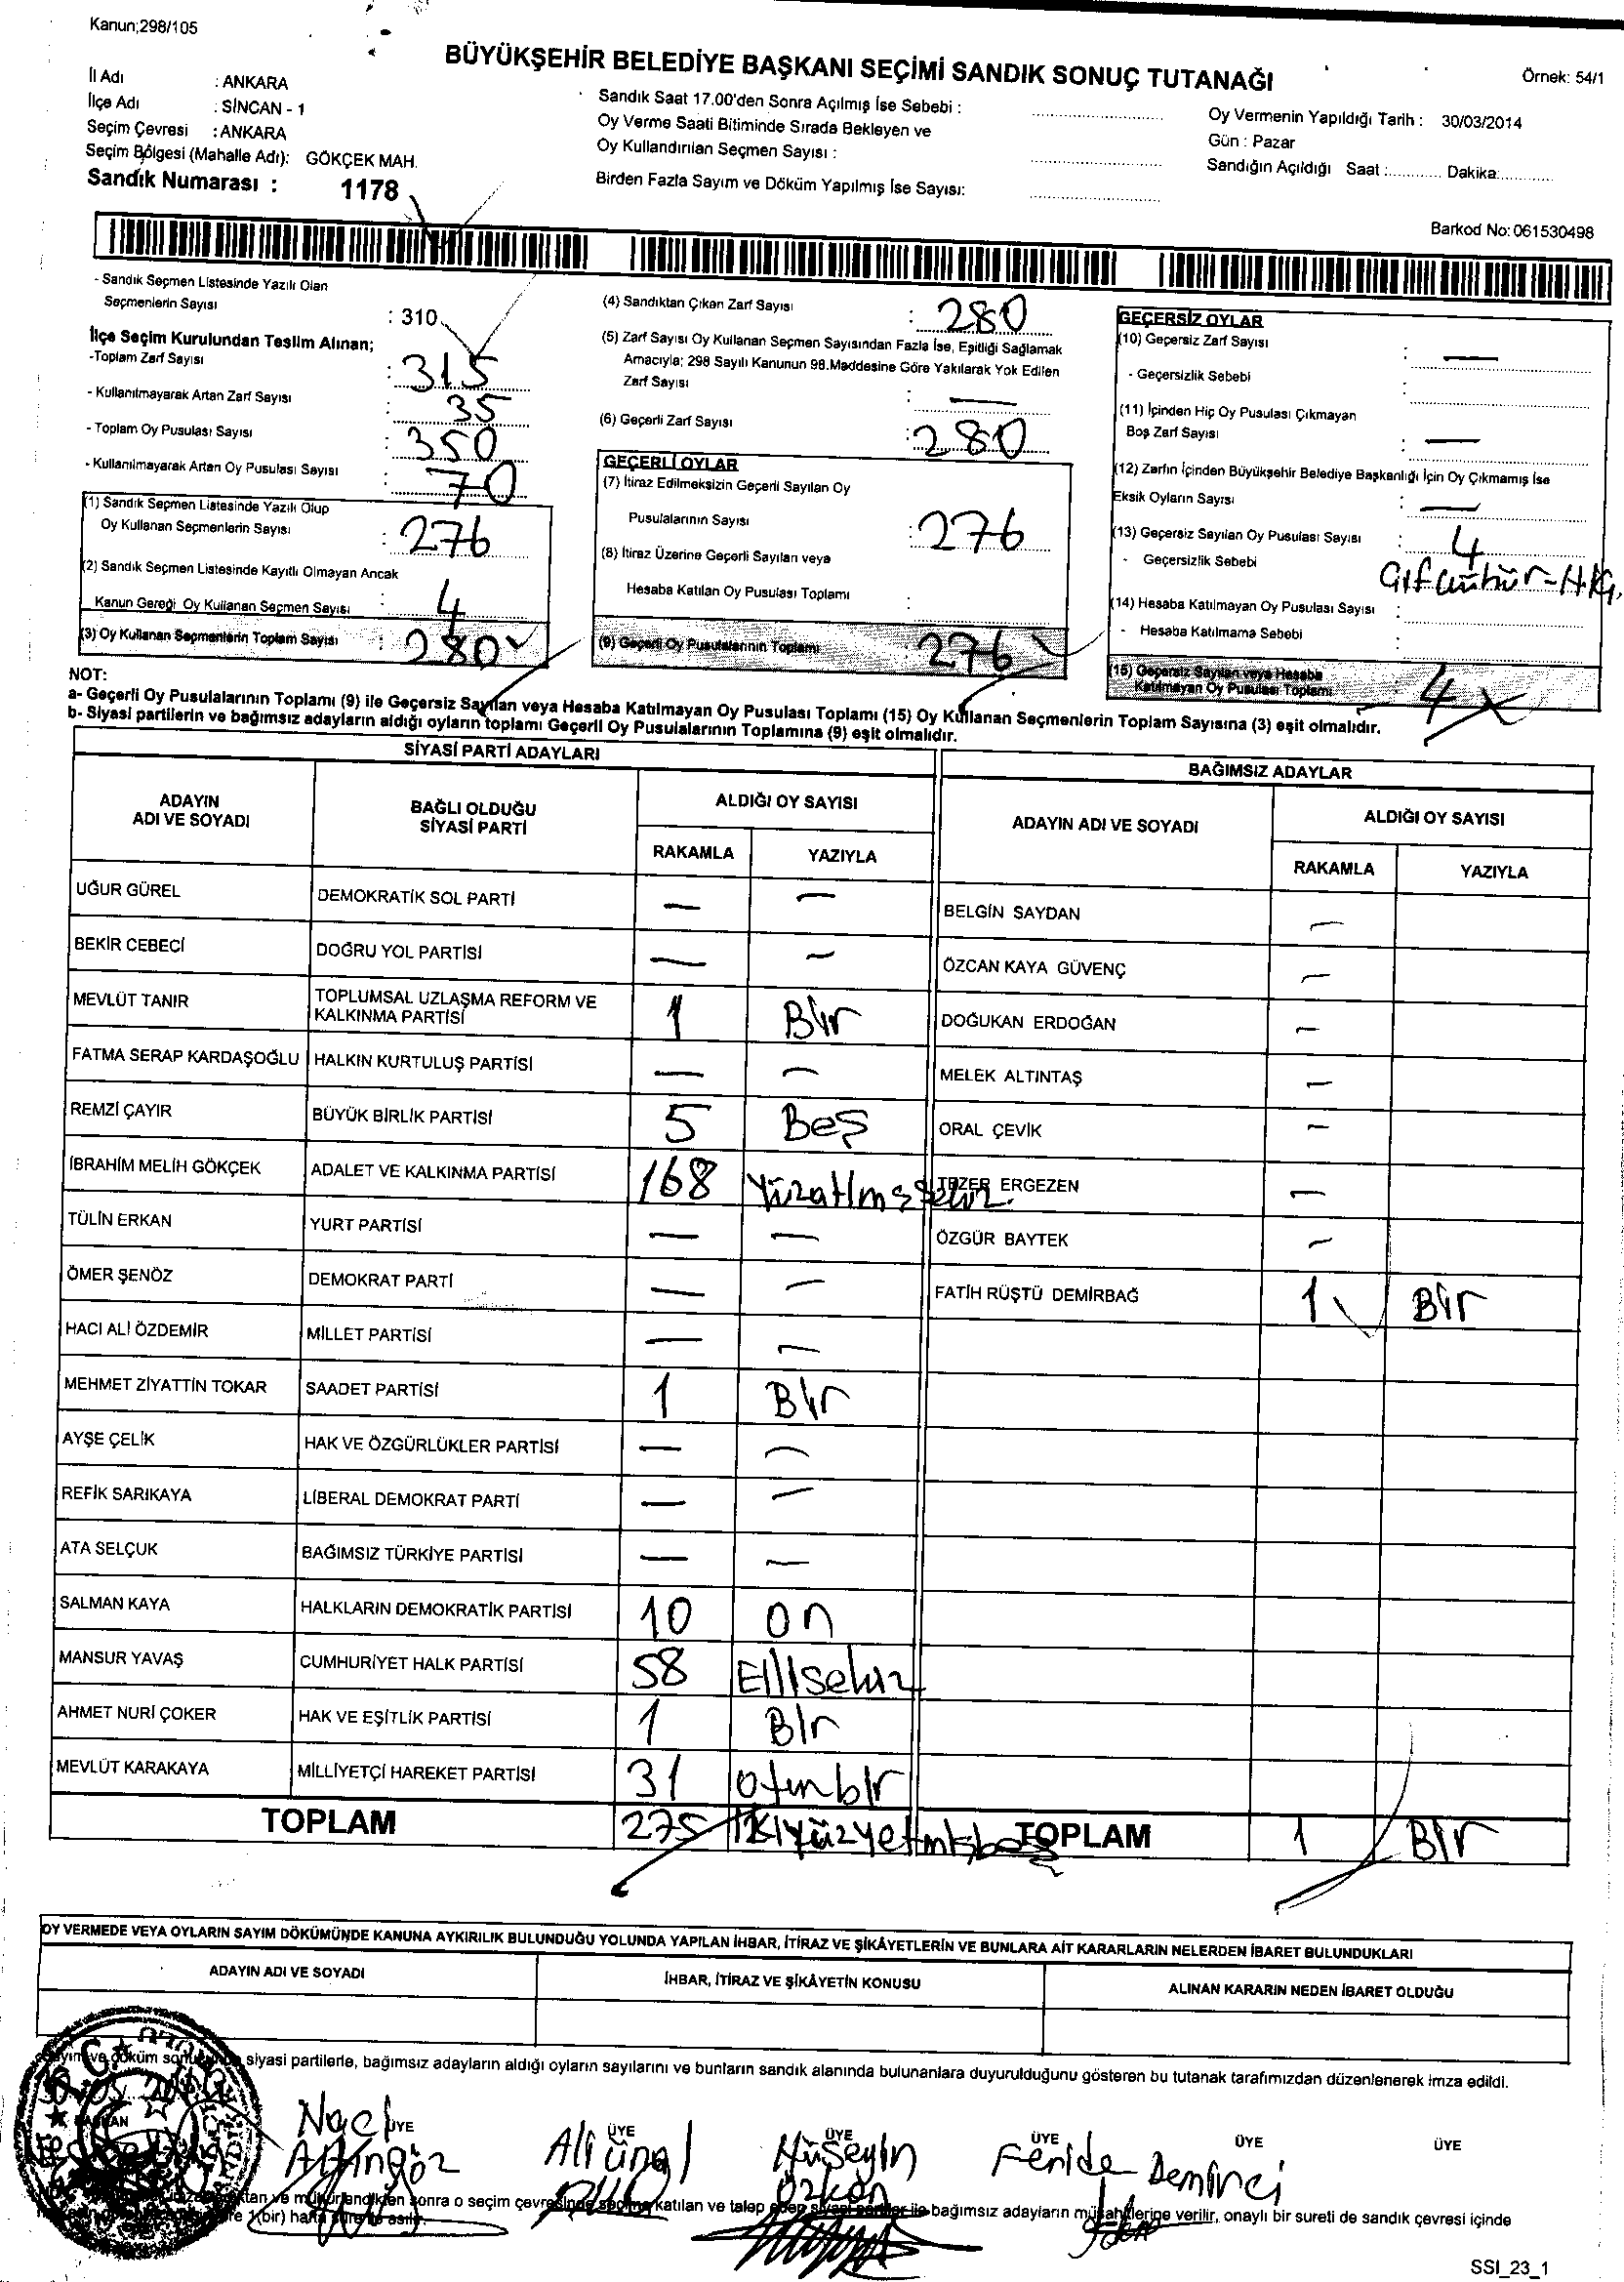 Kanun;298/105
BÜYÜKŞEHİR BELEDİYE BAŞKANI SEÇİMİ SANDIK SONUÇ TUTANAĞI
Örnek: 54/1
İl Adı : ANKARA
İlçe Adı : SİNCAN - 1
Seçim Çevresi : ANKARA
Seçim Bölgesi (Mahalle Adı): GÖKÇEK MAH.
Sandık Numarası : 1178
Sandık Saat 17.00'den Sonra Açılmış İse Sebebi :
Oy Verme Saati Bitiminde Sırada Bekleyen ve
Oy Kullandırılan Seçmen Sayısı :
Birden Fazla Sayım ve Döküm Yapılmış İse Sayısı:
Oy Vermenin Yapıldığı Tarih : 30/03/2014
Gün : Pazar
Sandığın Açıldığı Saat :............ Dakika:............
Barkod No: 061530498
- Sandık Seçmen Listesinde Yazılı Olan
Seçmenlerin Sayısı : 310
İlçe Seçim Kurulundan Teslim Alınan;
-Toplam Zarf Sayısı : 315
- Kullanılmayarak Artan Zarf Sayısı : 35
- Toplam Oy Pusulası Sayısı : 350
- Kullanılmayarak Artan Oy Pusulası Sayısı : 70
(1) Sandık Seçmen Listesinde Yazılı Olup
Oy Kullanan Seçmenlerin Sayısı : 276
(2) Sandık Seçmen Listesinde Kayıtlı Olmayan Ancak
Kanun Gereği Oy Kullanan Seçmen Sayısı : 4
(3) Oy Kullanan Seçmenlerin Toplam Sayısı : 280
(4) Sandıktan Çıkan Zarf Sayısı : 280
(5) Zarf Sayısı Oy Kullanan Seçmen Sayısından Fazla İse, Eşitliği Sağlamak
Amacıyla; 298 Sayılı Kanunun 98.Maddesine Göre Yakılarak Yok Edilen
Zarf Sayısı : —
(6) Geçerli Zarf Sayısı : 280
GEÇERLİ OYLAR
(7) İtiraz Edilmeksizin Geçerli Sayılan Oy
Pusulalarının Sayısı : 276
(8) İtiraz Üzerine Geçerli Sayılan veya
Hesaba Katılan Oy Pusulası Toplamı :
(9) Geçerli Oy Pusulalarının Toplamı 276
GEÇERSİZ OYLAR
(10) Geçersiz Zarf Sayısı : —
- Geçersizlik Sebebi :
(11) İçinden Hiç Oy Pusulası Çıkmayan
Boş Zarf Sayısı : —
(12) Zarfın İçinden Büyükşehir Belediye Başkanlığı İçin Oy Çıkmamış İse
Eksik Oyların Sayısı : —
(13) Geçersiz Sayılan Oy Pusulası Sayısı : 4
- Geçersizlik Sebebi
(14) Hesaba Katılmayan Oy Pusulası Sayısı :
- Hesaba Katılmama Sebebi :
(15) Geçersiz Sayılan veya Hesaba
Katılmayan Oy Pusulası Toplamı 4
NOT:
a- Geçerli Oy Pusulalarının Toplamı (9) ile Geçersiz Sayılan veya Hesaba Katılmayan Oy Pusulası Toplamı (15) Oy Kullanan Seçmenlerin Toplam Sayısına (3) eşit olmalıdır.
b- Siyasi partilerin ve bağımsız adayların aldığı oyların toplamı Geçerli Oy Pusulalarının Toplamına (9) eşit olmalıdır.
SİYASİ PARTİ ADAYLARI
ADAYIN ADI VE SOYADI
BAĞLI OLDUĞU SİYASİ PARTİ
ALDIĞI OY SAYISI
RAKAMLA YAZIYLA
UĞUR GÜREL DEMOKRATİK SOL PARTİ — —
BEKİR CEBECİ DOĞRU YOL PARTİSİ — —
MEVLÜT TANIR TOPLUMSAL UZLAŞMA REFORM VE KALKINMA PARTİSİ 1 Bir
FATMA SERAP KARDAŞOĞLU HALKIN KURTULUŞ PARTİSİ — —
REMZİ ÇAYIR BÜYÜK BİRLİK PARTİSİ 5 Beş
İBRAHİM MELİH GÖKÇEK ADALET VE KALKINMA PARTİSİ 168 Yüzatmışsekiz
TÜLİN ERKAN YURT PARTİSİ — —
ÖMER ŞENÖZ DEMOKRAT PARTİ — —
HACI ALİ ÖZDEMİR MİLLET PARTİSİ — —
MEHMET ZİYATTİN TOKAR SAADET PARTİSİ 1 Bir
AYŞE ÇELİK HAK VE ÖZGÜRLÜKLER PARTİSİ — —
REFİK SARIKAYA LİBERAL DEMOKRAT PARTİ — —
ATA SELÇUK BAĞIMSIZ TÜRKİYE PARTİSİ — —
SALMAN KAYA HALKLARIN DEMOKRATİK PARTİSİ 10 on
MANSUR YAVAŞ CUMHURİYET HALK PARTİSİ 58 Ellisekiz
AHMET NURİ ÇOKER HAK VE EŞİTLİK PARTİSİ 1 Bir
MEVLÜT KARAKAYA MİLLİYETÇİ HAREKET PARTİSİ 31 otuzbir
TOPLAM 275 İkiyüzyetmişbeş
BAĞIMSIZ ADAYLAR
ADAYIN ADI VE SOYADI
ALDIĞI OY SAYISI
RAKAMLA YAZIYLA
BELGİN SAYDAN —
ÖZCAN KAYA GÜVENÇ —
DOĞUKAN ERDOĞAN —
MELEK ALTINTAŞ —
ORAL ÇEVİK —
TEZER ERGEZEN —
ÖZGÜR BAYTEK —
FATİH RÜŞTÜ DEMİRBAĞ 1 Bir
TOPLAM 1 Bir
OY VERMEDE VEYA OYLARIN SAYIM DÖKÜMÜNDE KANUNA AYKIRILIK BULUNDUĞU YOLUNDA YAPILAN İHBAR, İTİRAZ VE ŞİKÂYETLERİN VE BUNLARA AİT KARARLARIN NELERDEN İBARET BULUNDUKLARI
ADAYIN ADI VE SOYADI
İHBAR, İTİRAZ VE ŞİKÂYETİN KONUSU
ALINAN KARARIN NEDEN İBARET OLDUĞU
siyasi partilerle, bağımsız adayların aldığı oyların sayılarını ve bunların sandık alanında bulunanlara duyurulduğunu gösteren bu tutanak tarafımızdan düzenlenerek imza edildi.
BAŞKAN ÜYE ÜYE ÜYE ÜYE ÜYE ÜYE
Naci Altıngöz
Ali ünal
Hüseyin özkan
Feride Demirci
sonra o seçim çevresinde seçime katılan ve talep eden siyasi partiler ile bağımsız adayların müşahitlerine verilir, onaylı bir sureti de sandık çevresi içinde
(bir) hafta süre ile asılır.
SSI_23_1